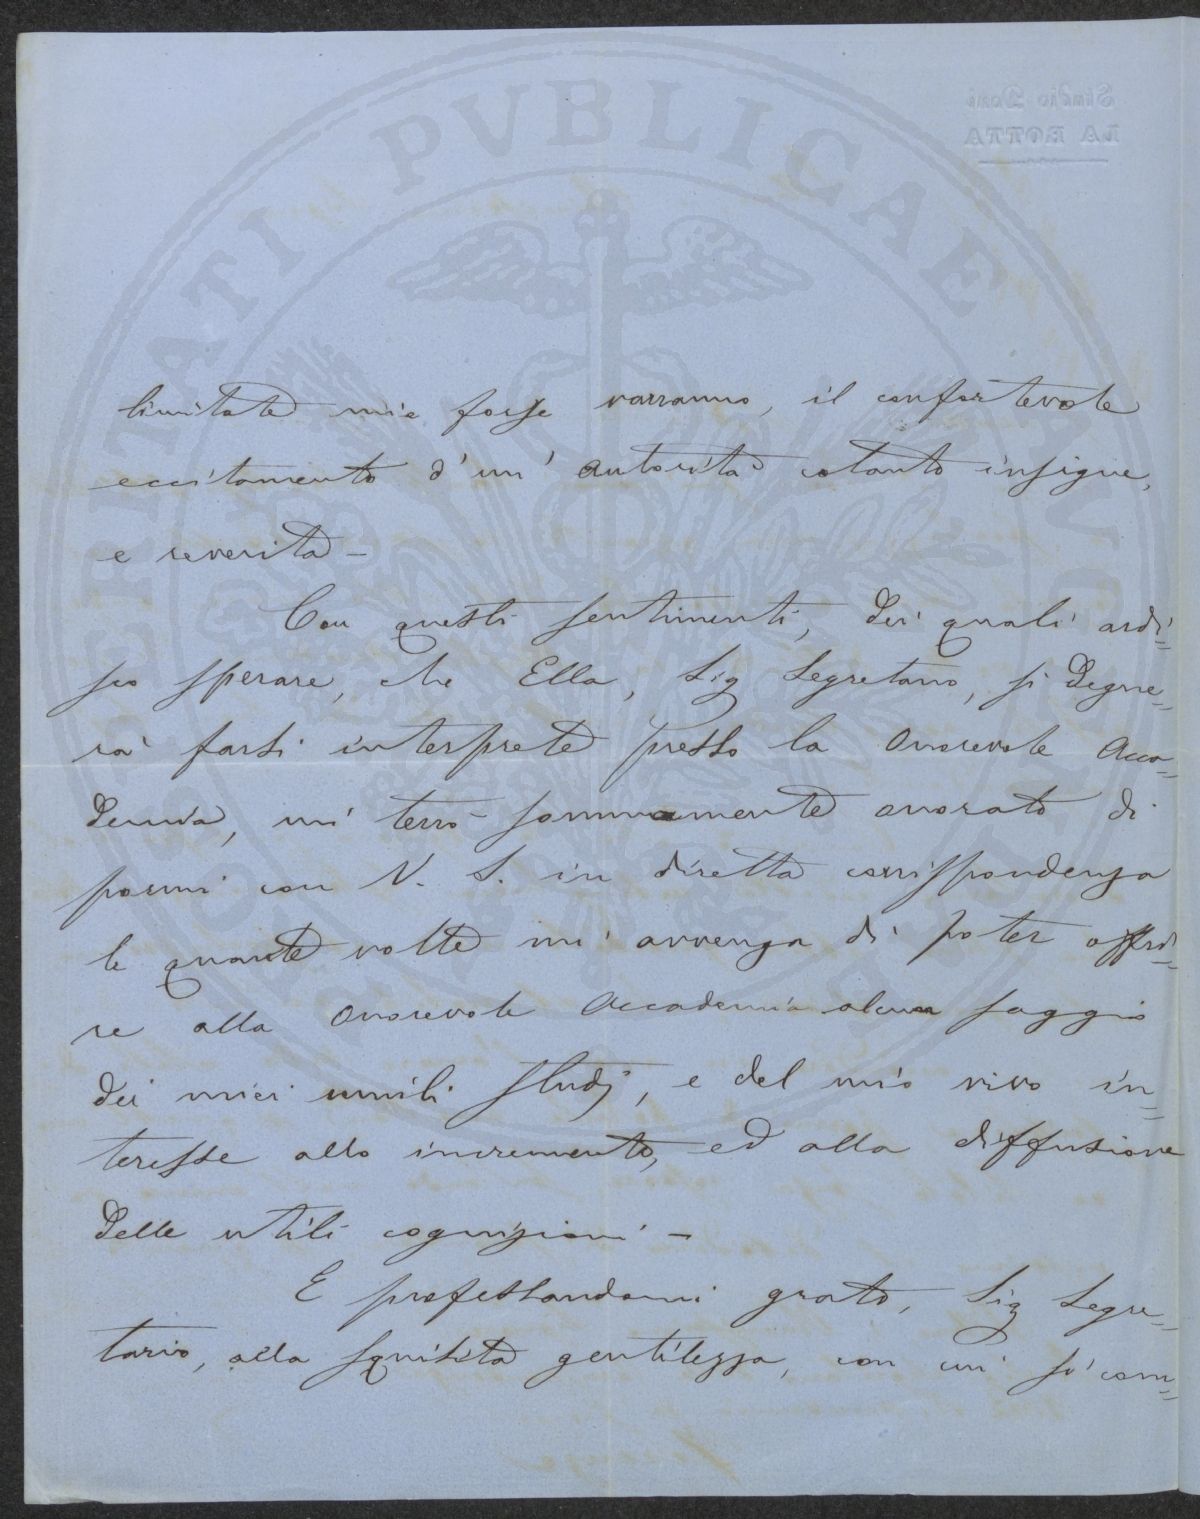 limitate mie forse varranno, il confortevole
eccitamento d'un' autorità cotanto insigne,
e reverita -
Con questi sentimenti, dei quali ardi=
sco sperare, che Ella, Sig Segretario, si degne=
rà farsi interprete presso la Onorevole Acca=
demia, mi terrò sommamente onorato di
pormi con V. S. in diretta corrispondenza
le quante volte mi avvenga di poter offri=
re alla Onorevole Accademia alcun saggio
dei miei umili studj, e del mio vivo in=
teresse allo incremento, ed alla diffusione
delle utili cognizioni -
E professandomi grato, Sig Segre=
tario, alla squisita gentilezza, con cui si com=
Studio Doni
LA ROTTA
PROSPERITATI PVBLICAE AVGENDAE